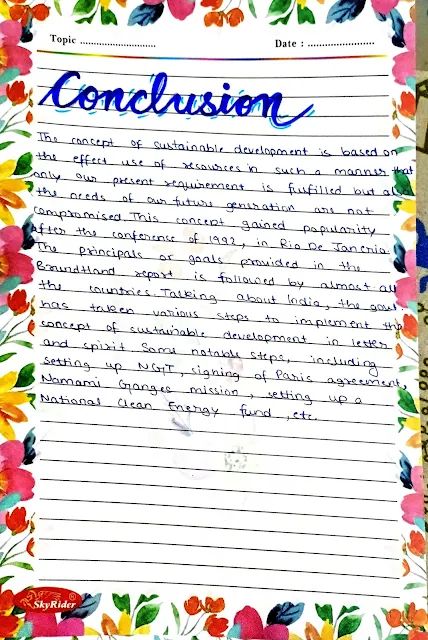 Topic ..............................
Date : ........................
Conclusion
The concept of sustainable development is based on
the effect use of resources in such a manner that
only our present requirement is fulfilled but also
the needs of our future generation are not
compromised. This concept gained popularity
after the conference of 1992, in Rio De Janeria.
The principals or goals provided in the
Broundtland report is followed by almost all
the countries. Talking about India, the govt.
has taken various steps to implement the
concept of sustainable development in letter
and spirit Some notable steps, including
setting up NGT, signing of Paris agreement,
Namami Ganges mission, setting up a
National Clean Energy fund, etc.
SkyRider